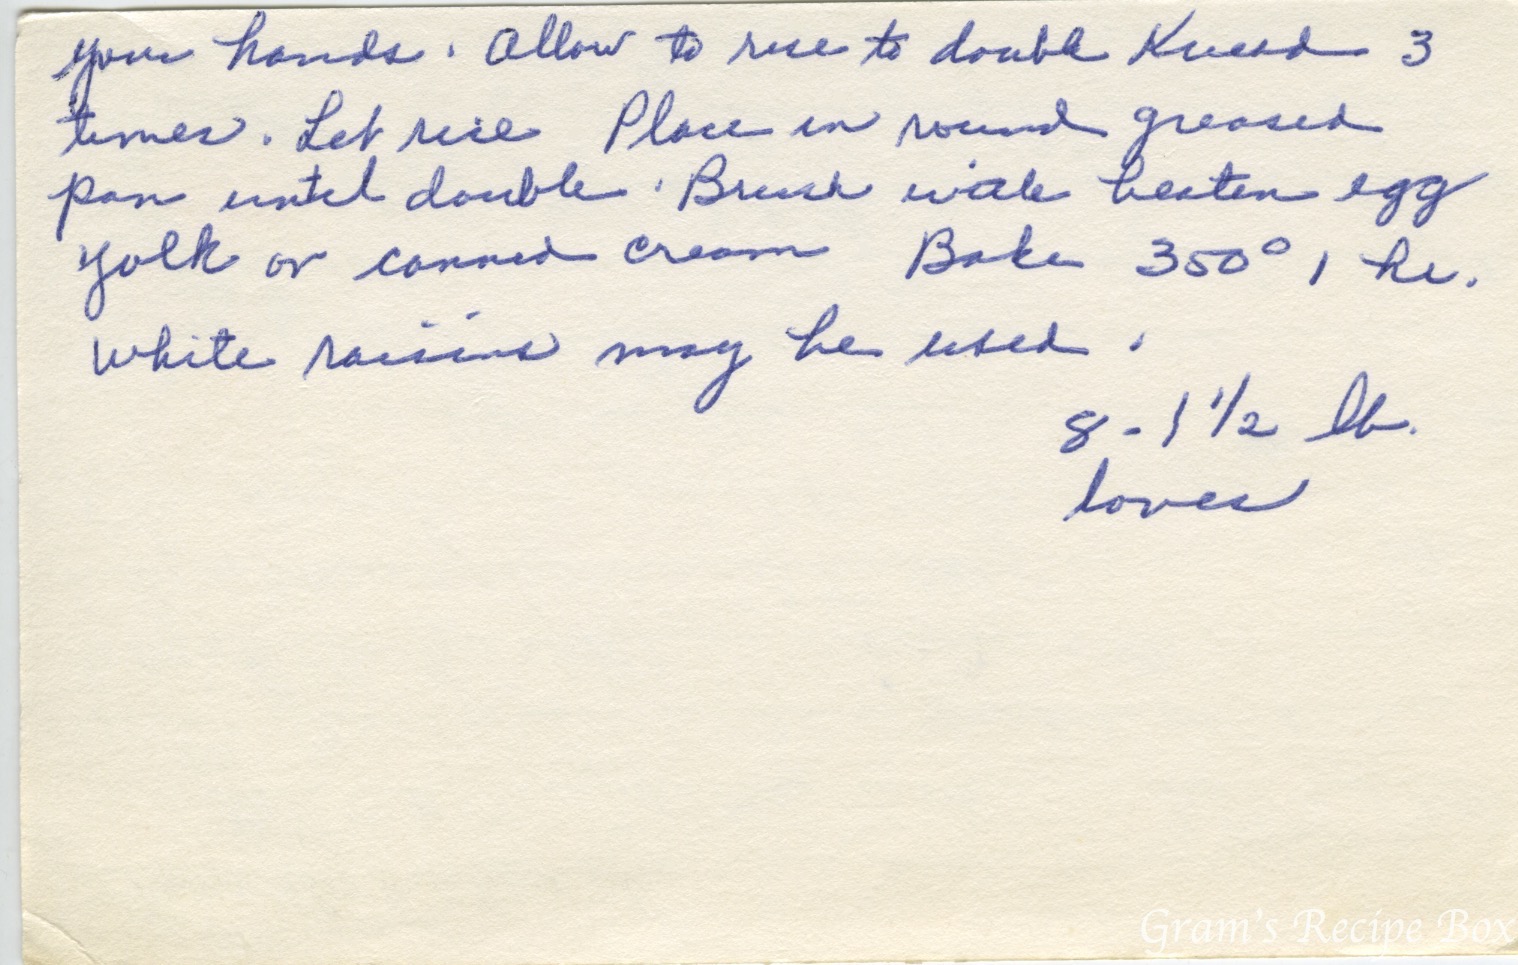 your hands. Allow to rise to double Knead 3
times. Let rise Place in round greased
pan until double. Brush with beaten egg
yolk or canned cream Bake 350° 1 hr.
White raisins may be used.
8 - 1 1/2 lb.
loves
Gram's Recipe Box